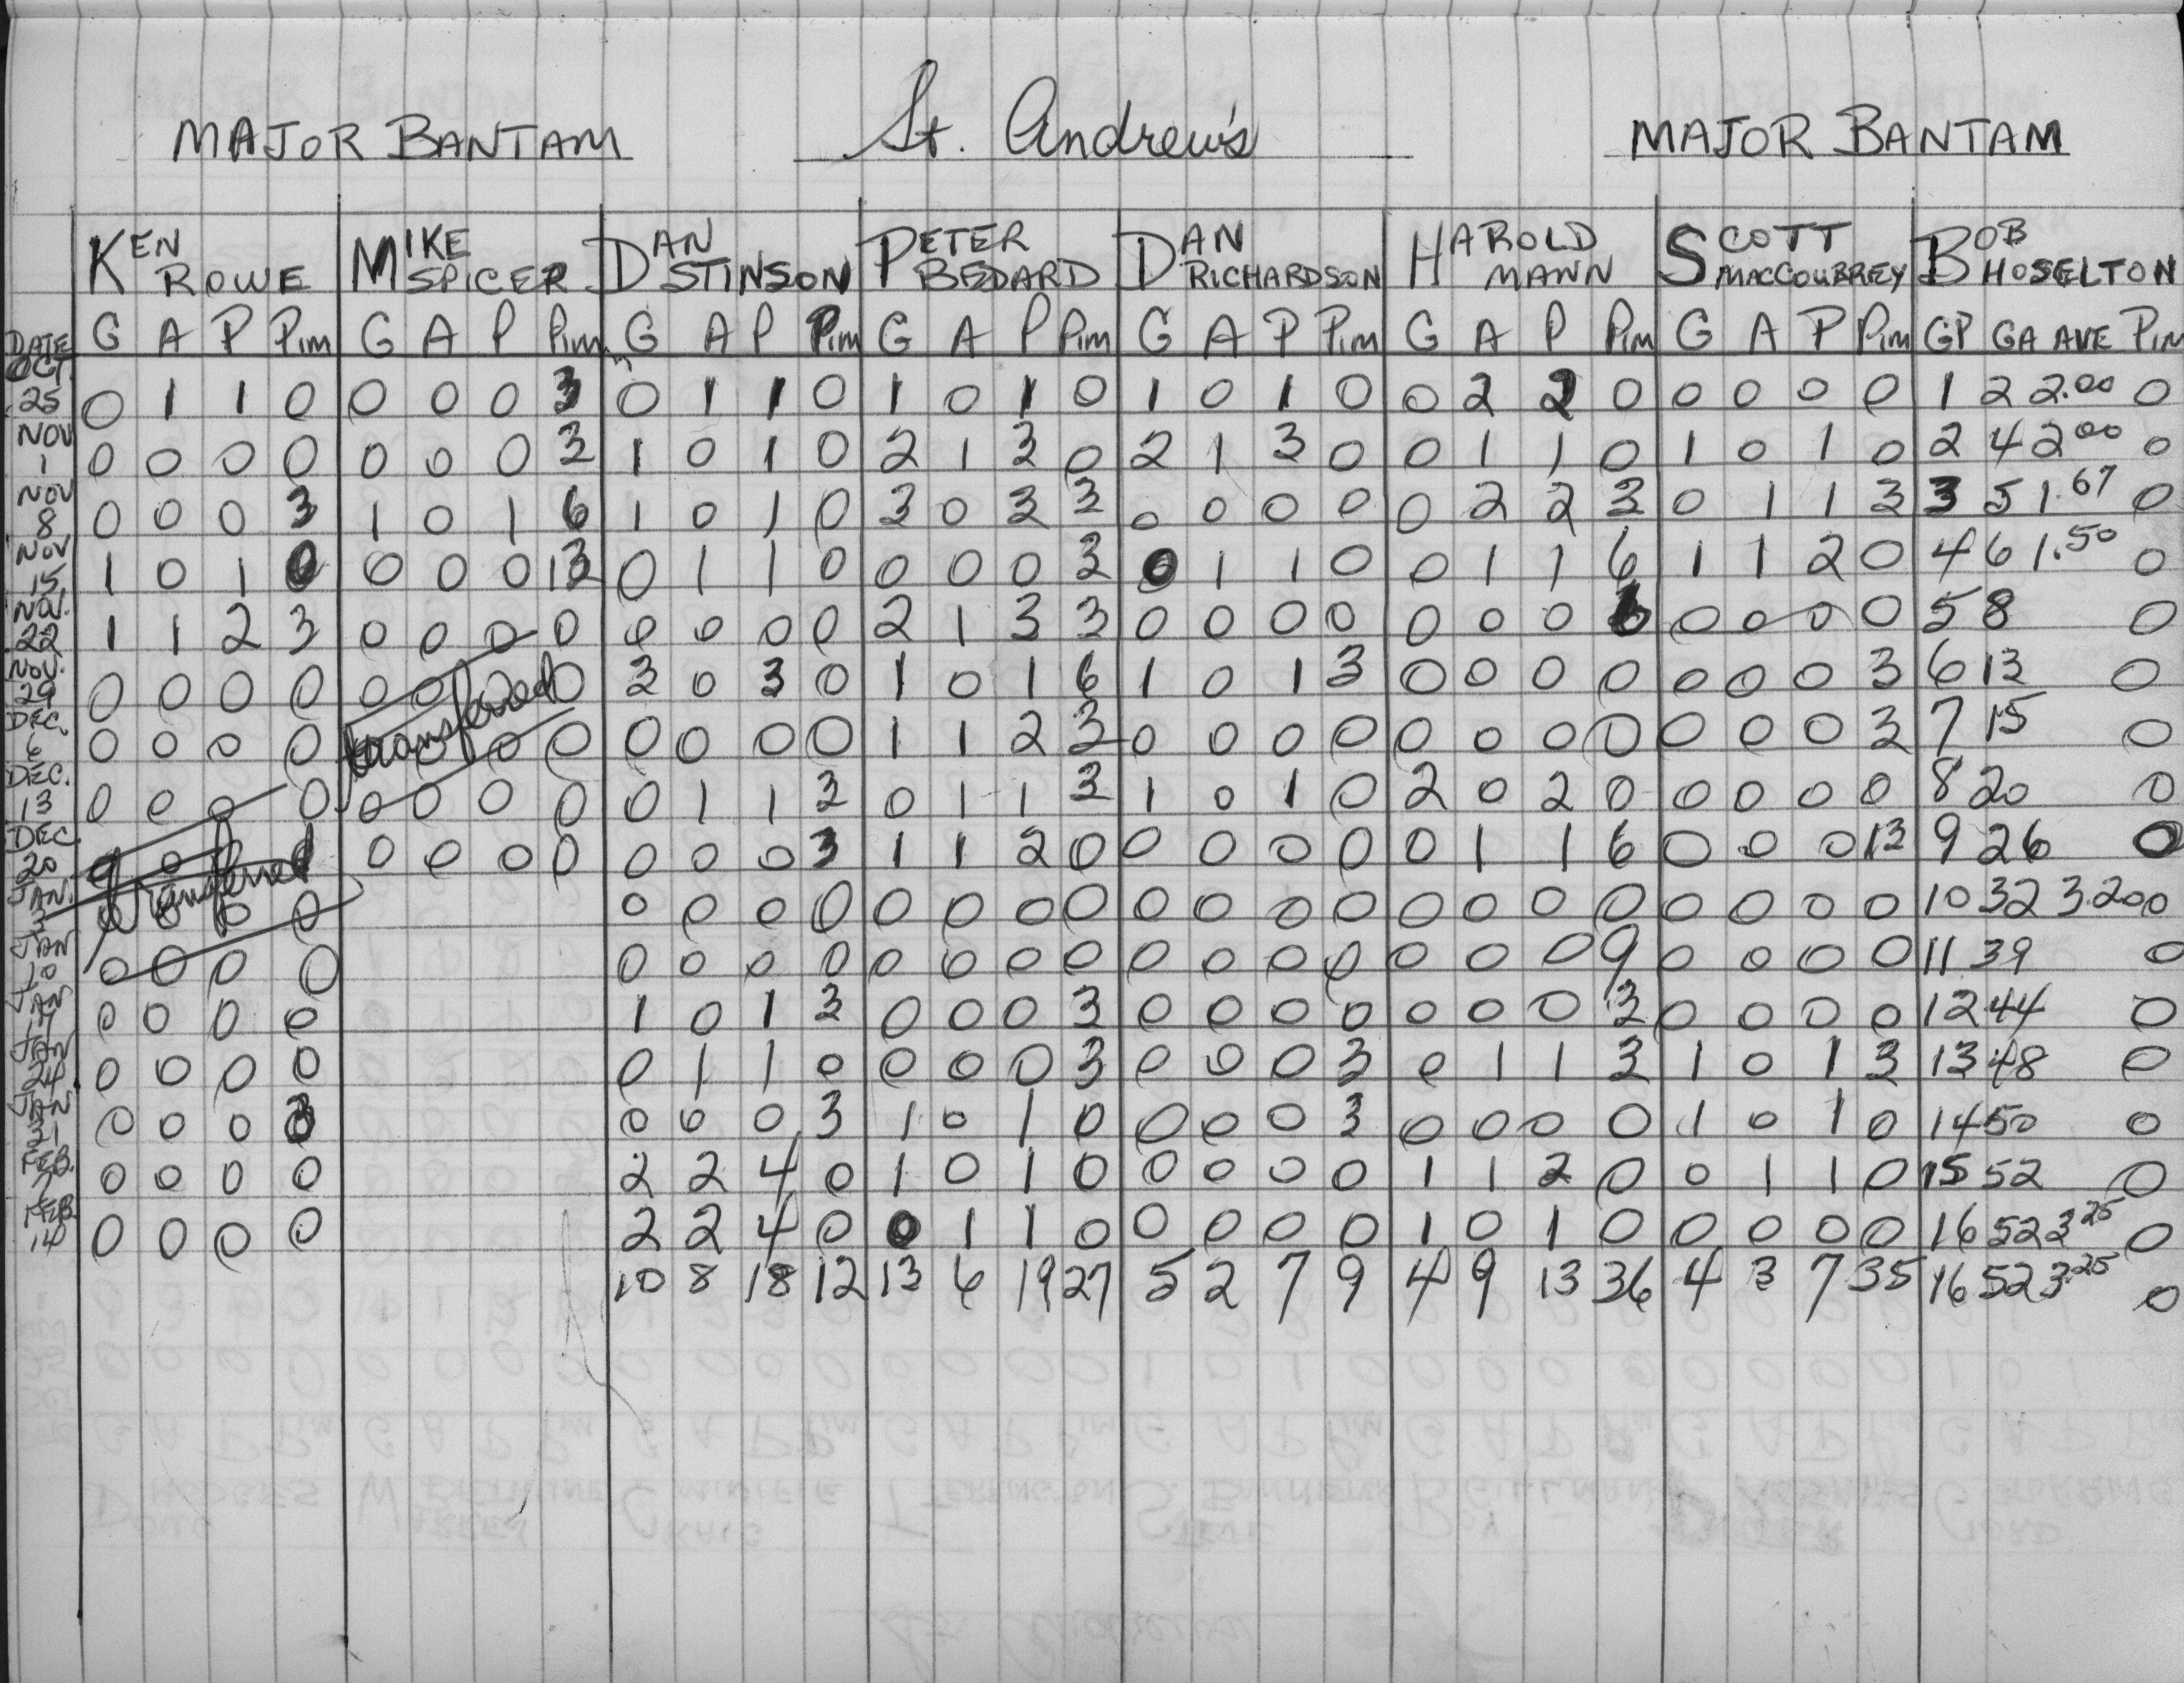 MAJOR BANTAM St. Andrew's MAJOR BANTAM
KEN ROWE MIKE SPICER DAN STINSON PETER BEDARD DAN RICHARDSON HAROLD MANN SCOTT MACCOUBREY BOB HOSELTON
DATE G A P Pim G A P Pim G A P Pim G A P Pim G A P Pim G A P Pim G A P Pim GP GA AVE Pim
OCT. 25 0 1 1 0 0 0 0 3 0 1 1 0 1 0 1 0 1 0 1 0 0 2 2 0 0 0 0 0 1 2 2.00 0
NOV 1 0 0 0 0 0 0 0 3 1 0 1 0 2 1 3 0 2 1 3 0 0 1 1 0 1 0 1 0 2 4 2.00 0
NOV 8 0 0 0 3 1 0 1 6 1 0 1 0 3 0 3 3 0 0 0 0 0 2 2 3 0 1 1 3 3 5 1.67 0
NOV 15 1 0 1 0 0 0 0 13 0 1 1 0 0 0 0 3 0 1 1 0 0 1 1 6 1 1 2 0 4 6 1.50 0
NOV. 22 1 1 2 3 0 0 0 0 0 0 0 0 2 1 3 3 0 0 0 0 0 0 0 0 0 0 0 5 8 0
NOV. 29 0 0 0 0 0 0 0 0 3 0 3 0 1 0 1 6 1 0 1 3 0 0 0 0 0 0 0 3 6 13 0
transferred
DEC. 6 0 0 0 0 0 0 0 0 0 0 0 1 1 2 3 0 0 0 0 0 0 0 0 0 0 0 3 7 15 0
DEC. 13 0 0 0 0 0 0 0 0 0 1 1 3 0 1 1 3 1 0 1 0 2 0 2 0 0 0 0 0 8 20 0
DEC 20 0 0 0 0 0 0 0 0 0 3 1 1 2 0 0 0 0 0 0 1 1 6 0 0 0 13 9 26 0
transferred
JAN. 3 0 0 0 0 0 0 0 0 0 0 0 0 0 0 0 0 0 0 0 0 0 0 0 0 10 32 3.20 0
JAN 10 0 0 0 0 0 0 0 0 0 0 0 0 0 0 0 0 0 0 0 9 0 0 0 0 11 39 0
JAN 17 0 0 0 0 1 0 1 3 0 0 0 3 0 0 0 0 0 0 0 3 0 0 0 0 12 44 0
JAN 24 0 0 0 0 0 1 1 0 0 0 0 3 0 0 0 3 0 1 1 3 1 0 1 3 13 48 0
JAN 31 0 0 0 3 0 0 0 3 1 0 1 0 0 0 0 3 0 0 0 0 1 0 1 0 14 50 0
FEB. 7 0 0 0 0 2 2 4 0 1 0 1 0 0 0 0 0 1 1 2 0 0 1 1 0 15 52 0
FEB. 14 0 0 0 0 2 2 4 0 0 1 1 0 0 0 0 0 1 0 1 0 0 0 0 0 16 52 3.25 0
10 8 18 12 13 6 19 27 5 2 7 9 4 9 13 36 4 3 7 35 16 52 3.25 0